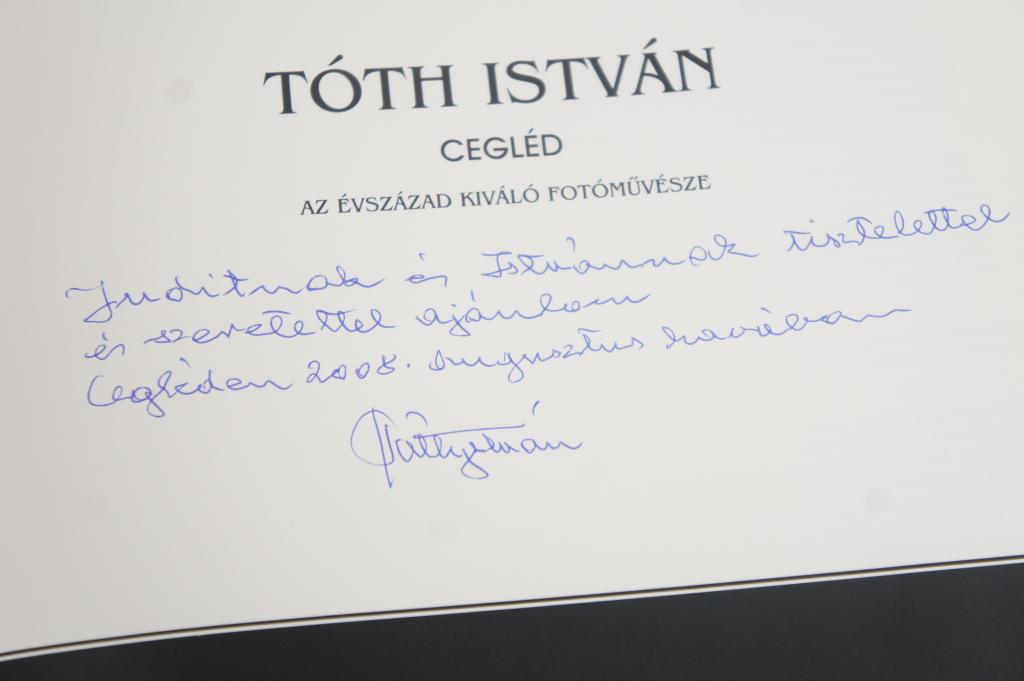 TÓTH ISTVÁN
CEGLÉD
AZ ÉVSZÁZAD KIVÁLÓ FOTÓMŰVÉSZE
Juditnak és Istvánnak tisztelettel
és szeretettel ajánlom
Cegléden 2008. augusztus havában